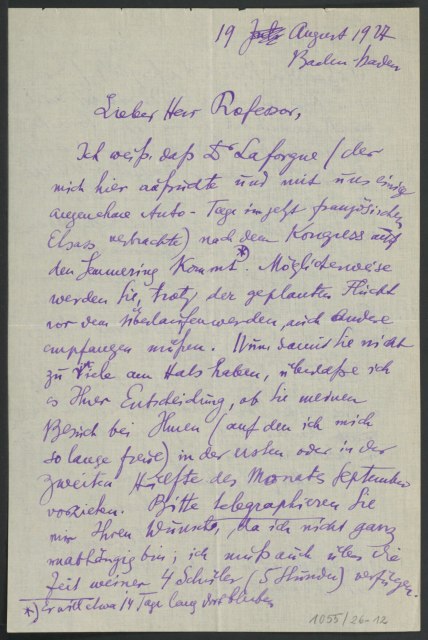 19 July August 1927
Baden-baden
Lieber Herr Professor,
Ich weiß, daß Dr Laforgue (der
mich hier aufsuchte und mit uns einige
angenehme Auto-Tage im jetzt französischen
Elsass verbrachte) nach dem Kongress auf
den Semmering kommt *). Möglicherweise
werden Sie, trotz der geplanten Flucht
vor dem Überlaufenwerden, auch andere
empfangen müssen. Nun damit Sie nicht
zu Viele am Hals haben, überlaße ich
es Ihrer Entscheidung, ob Sie meinen
Besuch bei Ihnen (auf den ich mich
so lange freue) in der ersten oder in der
zweiten Hälfte des Monats September
vorziehen. Bitte telegraphieren Sie
mir Ihren Wunsch, da ich nicht ganz
unabhängig bin; ich muß auch über die
Zeit meiner 4 Schüler (5 Stunden) verfügen.
*) Er will etwa 14 Tage lang dort bleiben
1055/26-12